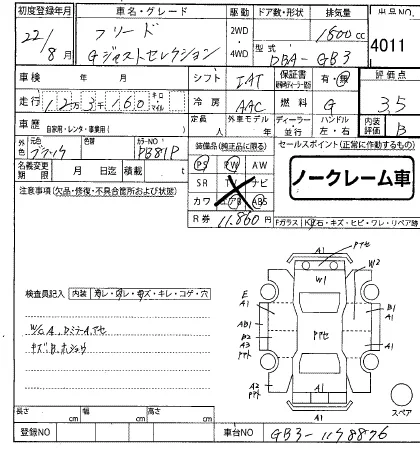 初度登録年月 車名・グレード 駆動 ドア数・形状 排気量 出品NO
22/8月 フリード Gジャストセレクション 2WD 4WD 1500cc
型式 DBA-GB3 4011
車検 年 月 シフト IAT 保証書 有・無 評価点
走行 12万3千160 キロ・マイル 冷房 AAC 燃料 G 3.5
車歴 自家用・レンタ・事業用( ) 定員 人 外車モデル 年 ディーラー・並行 ハンドル 左・右 内装評価 B
外色 元色 ブラック 色替 カラーNO PB81P 装備品(純正品に限る) セールスポイント(正常に作動するもの)
名義変更期限 月 日迄 積載量 t PS PW AW ノークレーム車
注意事項(欠品・修復・不具合箇所および状態) SR TV ナビ
カワ エアB ABS
R券 11,860円 Fガラス
A1 Pアセ
W1 W2
検査員記入 内装 コレ・ワレ・キズ・キレ・コゲ・穴
E A1 B1 A1
AB1 B2 A3 Pアセ A1
W/C A、Dミラー Aアセ
キズ B
A2 A1
長さ cm 幅 cm 高さ cm スペア
登録NO 車台NO GB3-1178876